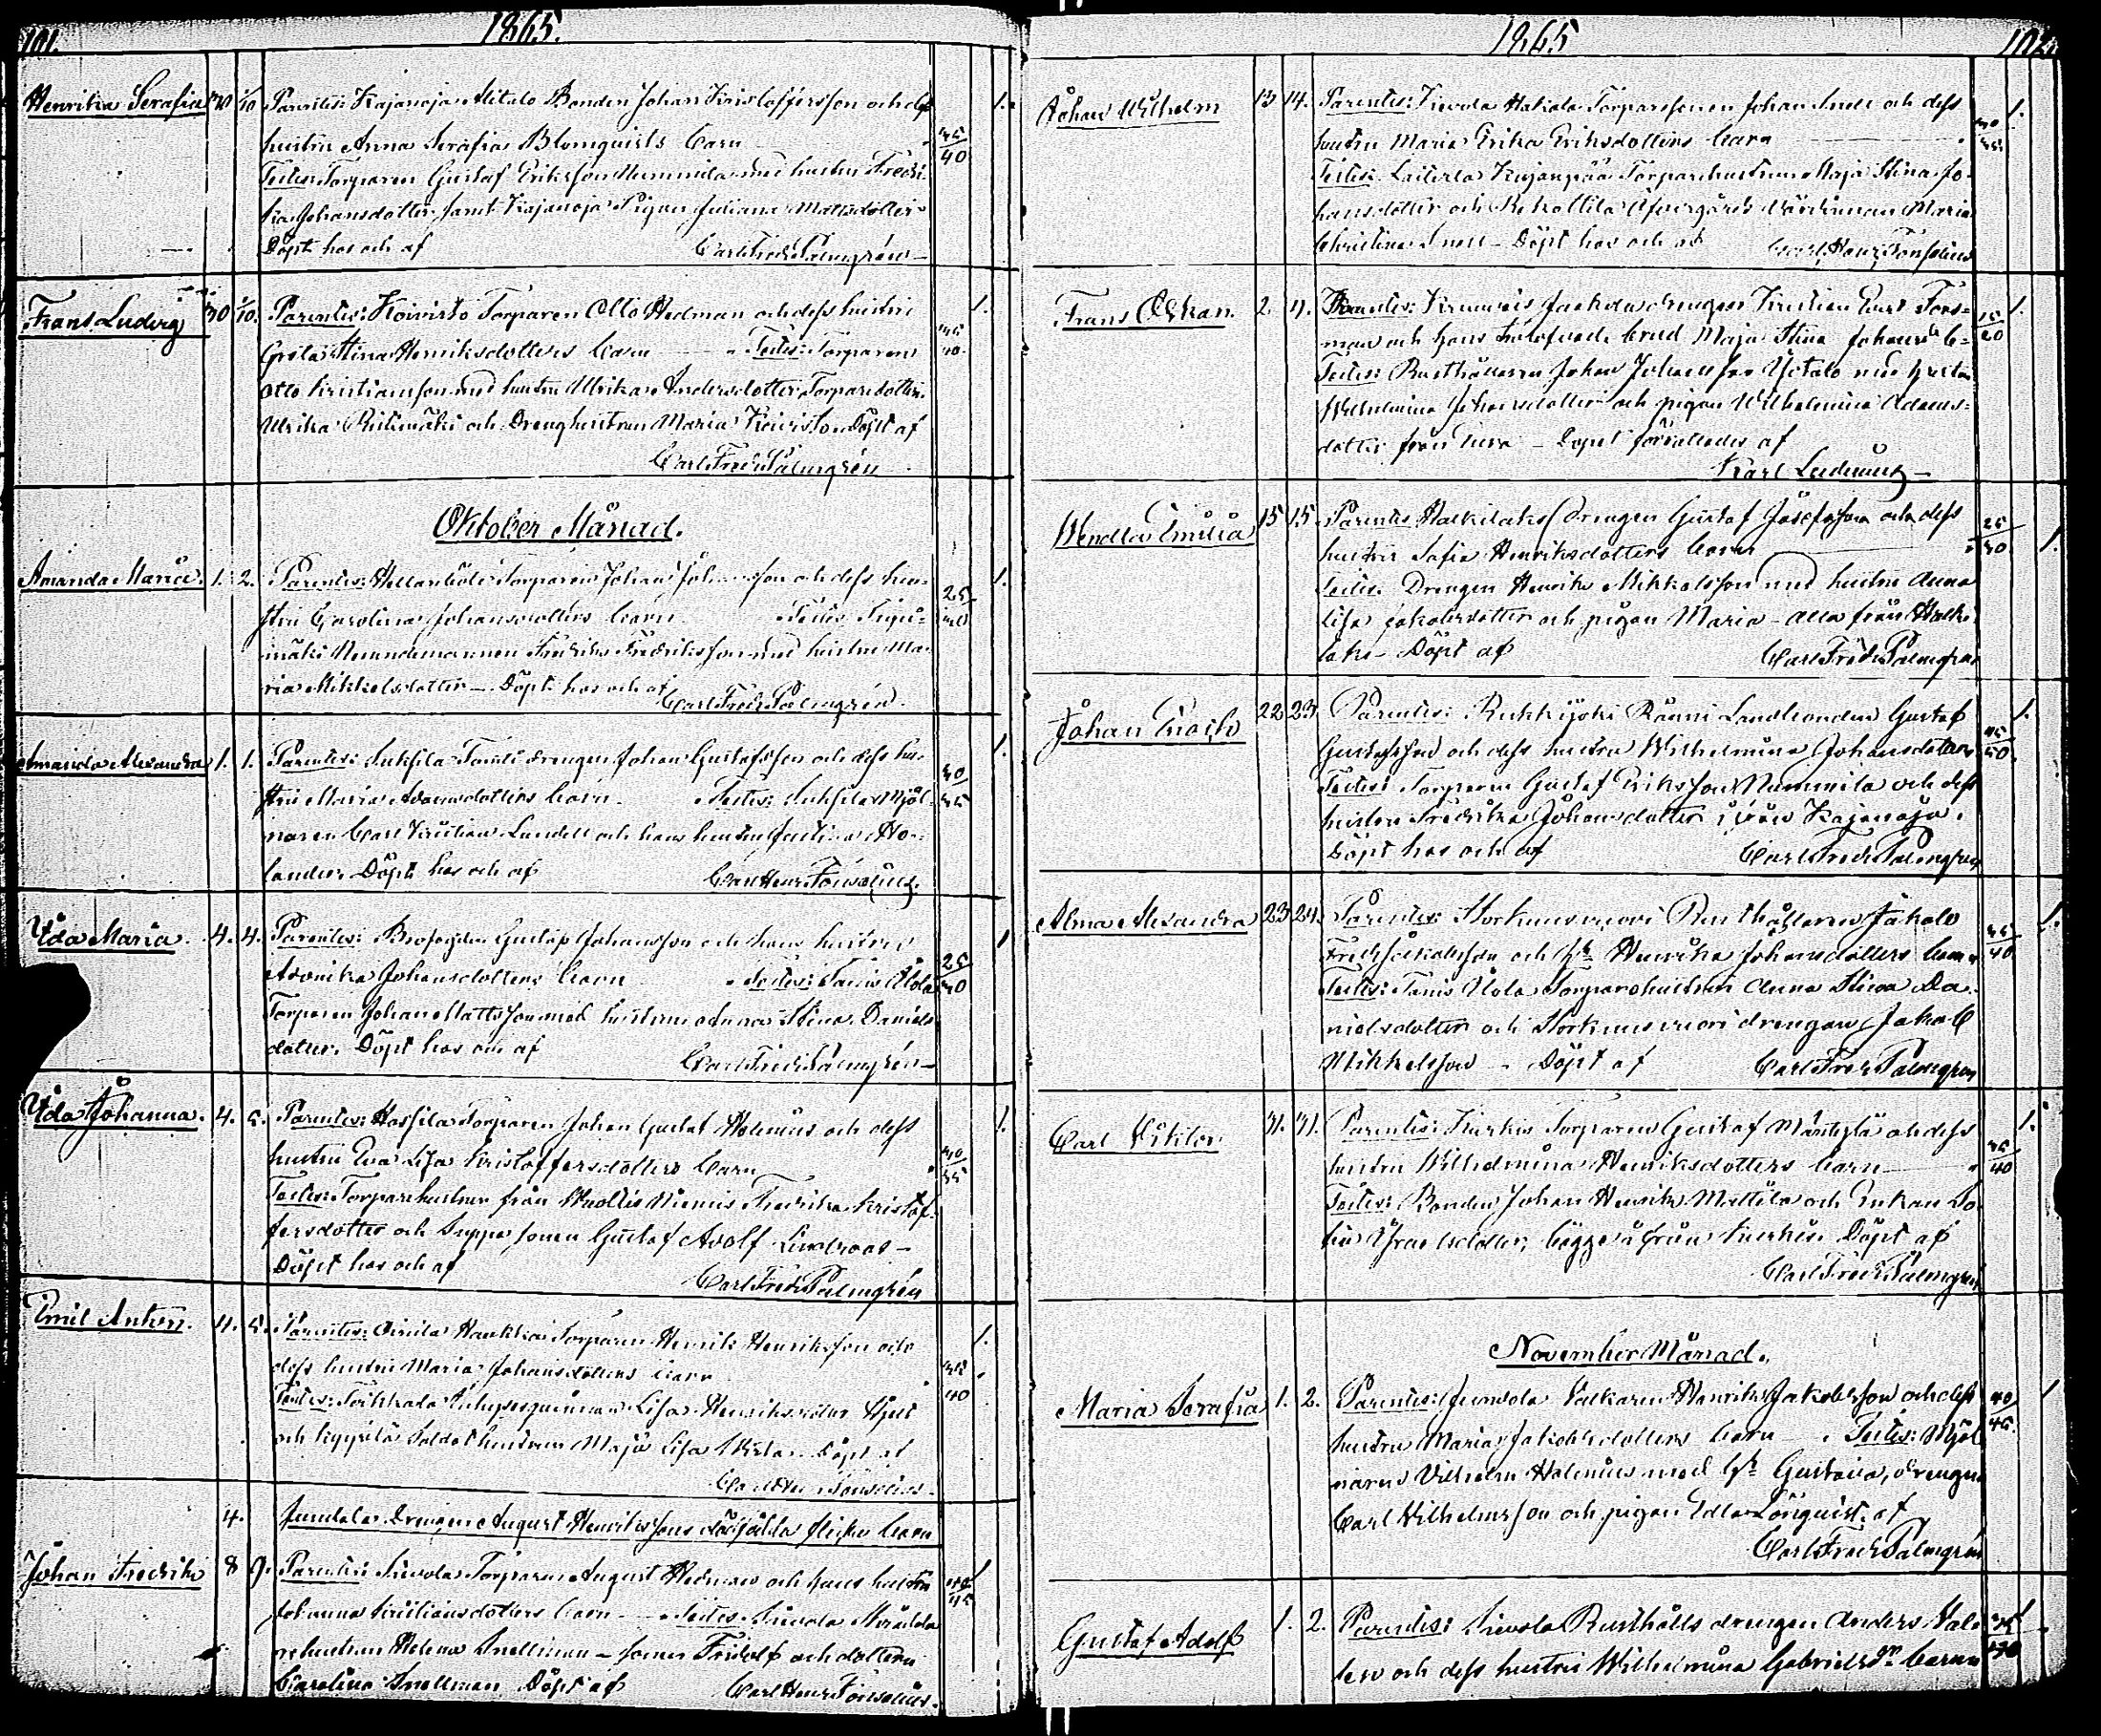 101. 1865.
Henrika Serafia 30 1/10 Parentes: Kajanoja Alitalo Bonden Johan Kristoffersson och dess 1.
hustru Anna Serafia Blomquists barn 35/40
Testes: Torparen Gustaf Eriksson Nummila med hustru Fredri-
ka Johansdotter, samt Kajanoja Pigan Juliana Mattsdotter
Döpt hos och af Carl Fredr. Palmgrén
Frans Ludvig 30 1/10. Parentes: Koivisto Torparen Otto Hedman och dess hustru 1.
Greta Stina Henriksdotters barn Testes: Torparen 35/40
Otto Kristiansson med hustru Ulrika Andersdotter, Torparedottren
Ulrika Riihimäki och Drenghustrun Maria Koivisto. Döpt af
Carl Fredr. Palmgrén
Oktober Månad.
Amanda Maria. 1. 2. Parentes: Torparen Johan Johansson och dess hu- 1.
stru Carolina Johansdotters barn. Testes: 25/30
mäki Nämndemannen Fredrik Fredriksson med hustru Ma-
ria Mikkelsdotter – Döpt hos och af Carl Fredr. Palmgrén.
Amanda Alexandra 1. 1. Parentes: drengen Johan Gustafsson och dess hu- 1.
stru Maria Adamsdotters barn. Testes: Mjöl- 30/35
naren Carl Kristian Lundell och hans hustru Justina Ho-
lander. Döpt hos och af Carl Henr. Fonselius.
Ida Maria. 4. 4. Parentes: Gustaf Johansson och hans hustru 1
Johansdotters barn Testes: Tanis Uola 25/30
Torparen Johan Mattsson med hustrun Anna Stina Daniels-
dotter. Döpt hos och af Carl Fredr. Palmgrén
Ida Johanna. 4. 5. Parentes: Hassila Torparen Johan Gustaf Holenius och dess 1.
hustru Eva Lisa Kristoffersdotters barn 30/35
Testes: Torparehustrun från Niemis Fredrika Kristof-
fersdotter och sonen Gustaf Adolf Lindroos –
Döpt hos och af Carl Fredr. Palmgrén
Emil Anton. 4. 5. Parentes: Torparen Henrik Henriksson och 1.
dess hustru Maria Johansdotters barn 35/40
Testes: Lisa Henriksdotter
och Soldathustrun Maja Lisa Döpt af
Carl Henr. Fonselius.
4. Jundola Drengen August Henrikssons dödfödda flicke barn
Johan Fredrik 8 9. Parentes: Sievola Torparen August Hedman och hans hustru 1
Johanna Kristiansdotters barn. Testes: Sievola 40/45
rehustrun Helena Snellman – sonen Fridolf och dottern
Carolina Snellman Döpt af Carl Henr. Fonselius.
1865 102.
Johan Wilhelm 13 14. Parentes: Sievola Hakala Torparesonen Johan Snell och dess 1.
hustru Maria Erika Eriksdotters barn 30/35
Testes: Laiterla Kujanpää Torparehustrun Maja Stina Jo-
hansdotter och Värdinnan Maria
Christina Snell – Döpt hos och af Carl Henr. Fonselius
Frans Oskar. 2. 4. Parentes: drengen Kristian Evert Fors- 1.
man och hans trolofvade brud Maja Stina Johansd. b– 15/20
Testes: Rusthållaren Johan Johansson Ylitalo med hustru
Wilhelmina Johansdotter och pigan Wilhelmina Adams-
dotter från Eura – Dopet förrättades af
Karl Ludvig
Wendla Emilia 15 15. Parentes: Halkilaks Drengen Gustaf Josefsson och dess
hustru Sofia Henriksdotters barn 25/30 1.
Testes: Drengen Henrik Mikkelsson med hustru Anna
Lisa Jakobsdotter och pigan Maria – alla från Halki-
laks – Döpt af Carl Fredr. Palmgrén
Johan Enoch 22 23. Parentes: Ruhkijoki Ränni Landbonden Gustaf 1.
Gustafsson och dess hustru Wilhelmina Johansdotter 45/50
Testes: Torparen Gustaf Eriksson Nummila och dess
hustru Fredrika Johansdotter ifrån Kajanoja.
Döpt hos och af Carl Fredr. Palmgrén
Alma Alexandra 23 24. Parentes: Storkunsvuori Rusthållaren Jakob 1.
Fredr. Jakobsson och h. Henrika Johansdotters barn 35/40
Testes: Tanis Uola Torparehustrun Anna Stina Da-
nielsdotter och Storkunsvuori drengen Jakob
Mikkelsson – Döpt af Carl Fredr. Palmgrén
Carl Viktor 31. 31. Parentes: Kurkis Torparen Gustaf Mäntylä och dess 1.
hustru Wilhelmina Henriksdotters barn 35/40
Testes: Bonden Johan Henrik Mattila och Enkan So-
fia Israelsdotter, begge från Kurkis. Döpt af
Carl Fredr. Palmgrén
November Månad.
Maria Serafia 1. 2. Parentes: Juvola Henrik Jakobsson och dess 40/45 1
hustru Maria Jakobsdotters barn – Testes: Mjöl-
naren Vilhelm Holenius med h. Gustava, drengen
Carl Vilhelmsson och pigan Edla Lönquist. af
Carl Fredr. Palmgrén
Gustaf Adolf 1. 2. Parentes: Sievola Rusthålls drengen Anders 1.
och dess hustru Wilhelmina Gabrielsd. barn